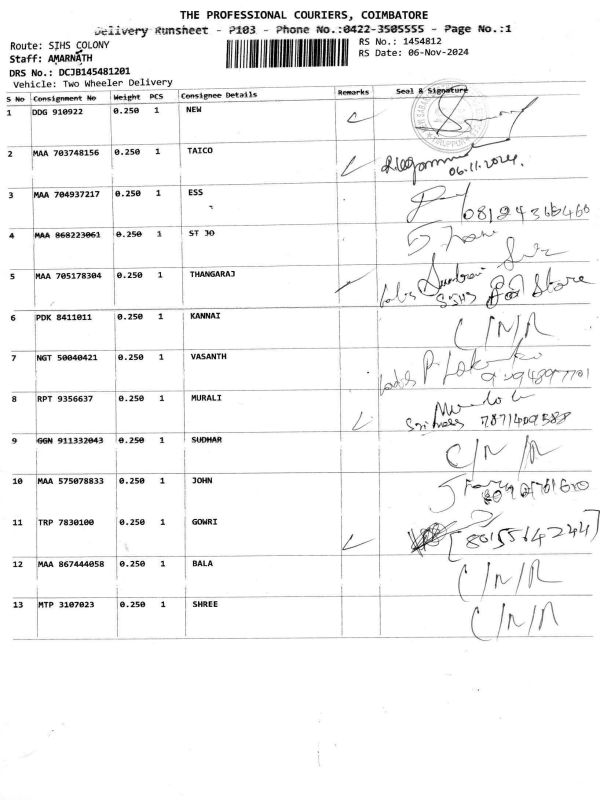 THE PROFESSIONAL COURIERS, COIMBATORE
Delivery Runsheet - P103 - Phone No.:0422-3505555 - Page No.:1
Route: SIHS COLONY
RS No.: 1454812
Staff: AMARNATH
RS Date: 06-Nov-2024
DRS No.: DCJB145481201
Vehicle: Two Wheeler Delivery
S No Consignment No Weight PCS Consignee Details Remarks Seal & Signature
1 DDG 910922 0.250 1 NEW
2 MAA 703748156 0.250 1 TAICO
06.11.2024.
3 MAA 704937217 0.250 1 ESS
4 MAA 868223061 0.250 1 ST JO
5 MAA 705178304 0.250 1 THANGARAJ
SIHS Store
6 PDK 8411011 0.250 1 KANNAI C/N/R
7 NGT 50040421 0.250 1 VASANTH
8 RPT 9356637 0.250 1 MURALI
7871409588
9 GGN 911332043 0.250 1 SUDHAR C/N/R
10 MAA 575078833 0.250 1 JOHN
11 TRP 7830100 0.250 1 GOWRI [8015564244]
12 MAA 867444058 0.250 1 BALA C/N/R
13 MTP 3107023 0.250 1 SHREE C/N/R